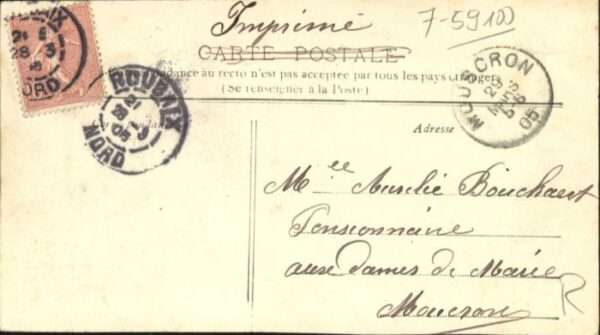 Imprimé
7-59100
CARTE POSTALE
ROUBAIX
21
28 - 3
05
NORD
ROUBAIX
21
28 - 3
05
NORD
MOUSCRON
29
MARS
05
dance au recto n'est pas acceptée par tous les pays étrangers
(Se renseigner à la Poste)
Adresse
Mlle Aurélie Bouchaert
Pensionnaire
aux dames de Marie
Moucron
R